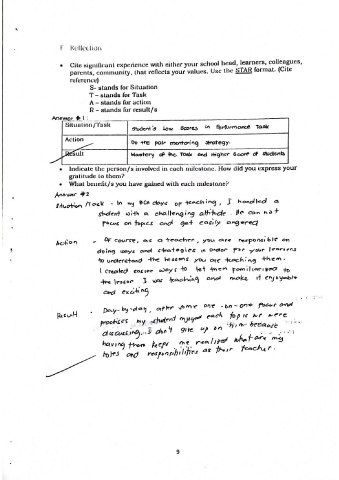 F. Reflection
• Cite significant experience with either your school head, learners, colleagues,
parents, community, that reflects your values. Use the STAR format. (Cite
reference)
S- stands for Situation
T – stands for Task
A – stands for action
R – stands for result/s
Answer #1:
Situation/Task student's Low Scores in Performance Task
Action Do the pair mentoring strategy.
Result Mastery of the Task and Higher Score of students
• Indicate the person/s involved in each milestone. How did you express your
gratitude to them?
• What benefit/s you have gained with each milestone?
Answer #2
Situation/Task - In my days of teaching, I handled a
student with a challenging attitude. He can not
focus on topics and get easily angered
Action - Of course, as a teacher, you are responsible on
doing ways and strategies in order for your learners
to understand the lessons you are teaching them.
I created easier ways to let them familiarized to
the lesson I was teaching and make it enjoyable
and exciting
Result - Day-by-day, after some one-on-one focus and
practices my student enjoyed each topic we were
discussing. I don't give up on him because
having them keeps me realized what are my
roles and responsibilities as their teacher.
9